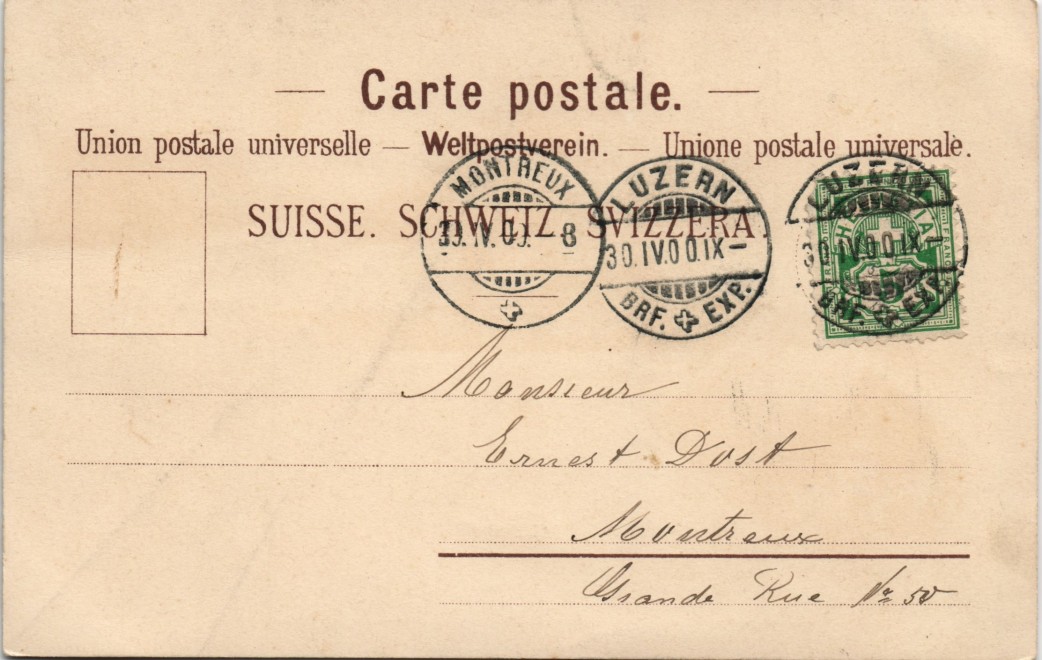 Carte postale.
Union postale universelle — Weltpostverein. — Unione postale universale.
SUISSE. SCHWEIZ. SVIZZERA
MONTREUX
30.IV.00. 8
LUZERN
30.IV.00.IX—
BRF. EXP.
LUZERN
30.IV.00.IX—
BRF. EXP.
FRANCO
5
Monsieur
Ernest Dost
Montreux
Grande Rue No 50